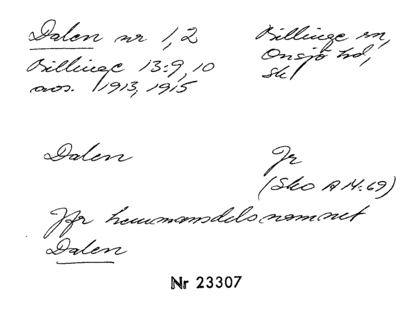 Dalen nr 1, 2
Billinge sn,
Billinge 13:9, 10
Onsjö hd,
avs. 1913, 1915
Sk
Dalen
Jr
(Sko A 14:69)
Jfr hemmansdelsnamnet
Dalen
Nr 23307